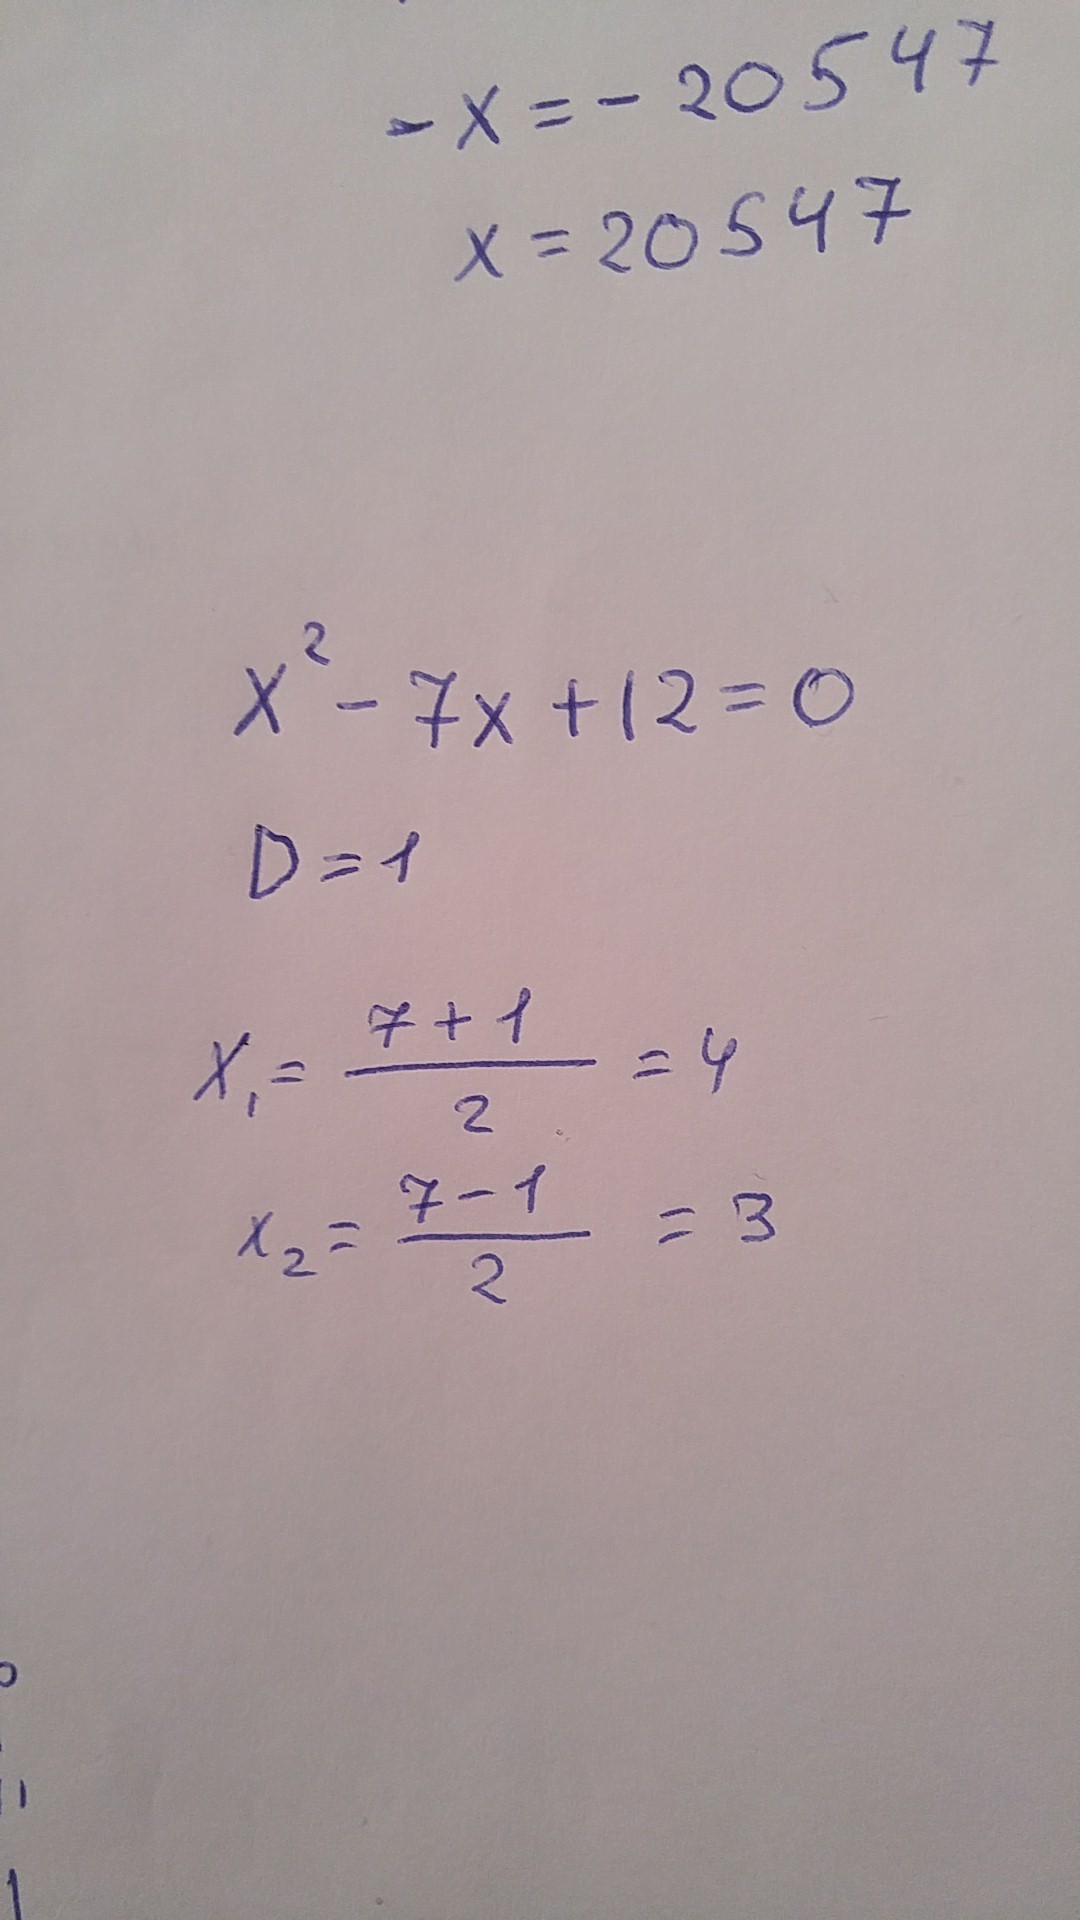 -x=-20547
x=20547
x²-7x+12=0
D=1
x₁=(7+1)/2=4
x₂=(7-1)/2=3